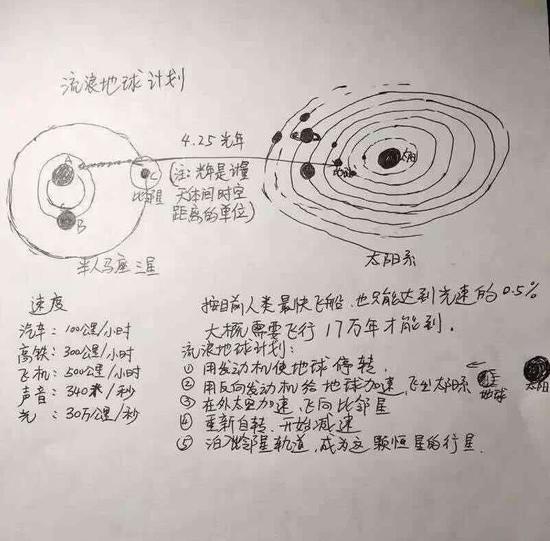 流浪地球计划
4.25光年
(注:光年是计量
天体间时空
距离的单位)
A
B
C
比邻星
半人马座三星
地球
太阳
太阳系
速度
汽车:100公里/小时
高铁:300公里/小时
飞机:500公里/小时
声音:340米/秒
光:30万公里/秒
按目前人类最快飞船,也只能达到光速的0.5%
大概需要飞行17万年才能到.
流浪地球计划:
① 用发动机使地球停转.
② 用反向发动机给地球加速,飞出太阳系
③ 在外太空加速,飞向比邻星
④ 重新自转.开始减速
⑤ 泊入比邻星轨道,成为这颗恒星的行星.
地球
太阳